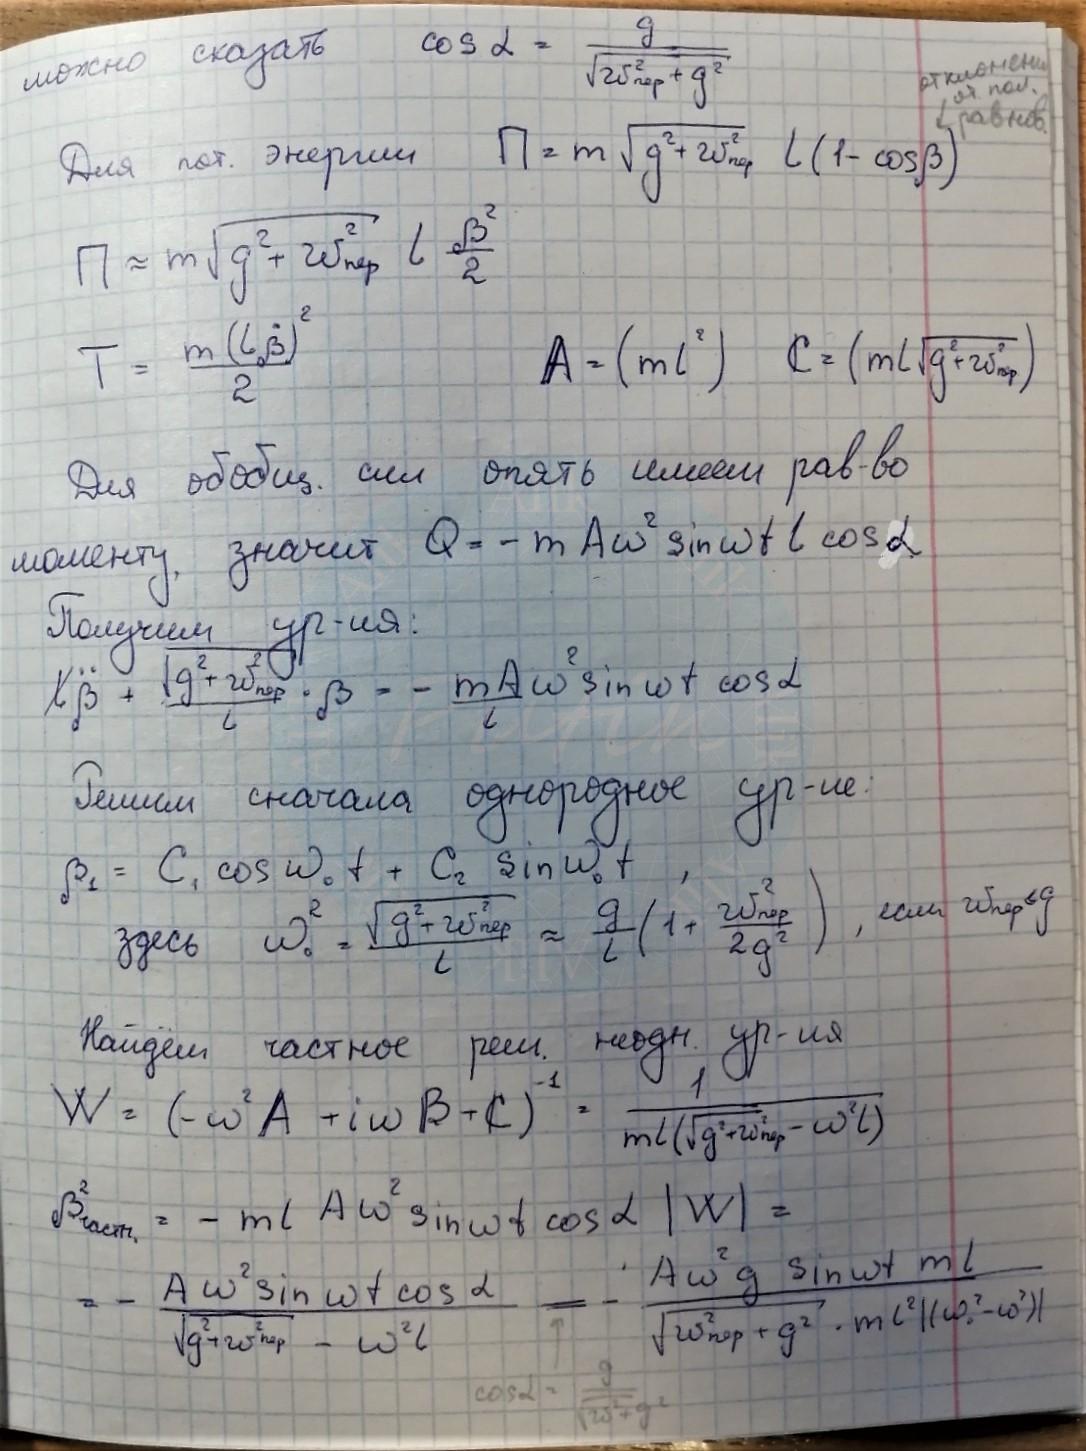 можно сказать cos α = g / √(w²пер + g²)
отклонения
от пол.
равнов.
Для пот. энергии П = m √(g² + w²пер) l (1 - cos β)
П ≈ m √(g² + w²пер) l β²/2
T = m(lβ̇)²/2   A = (ml²)   C = (ml√(g²+w²пер))
Для обобщ. сил опять имеем рав-во
моменту, значит Q = - m Aω² sin ωt l cos α
Получим ур-ия:
β̈ + √(g²+w²пер)/l · β = - mAω² sin ωt cos α / l
Решим сначала однородное ур-ие:
β₁ = C₁ cos ω₀ t + C₂ sin ω₀ t ,
здесь ω₀² = √(g²+w²пер)/l ≈ g/l (1 + w²пер/2g²) , если wпер ≤ g
Найдём частное реш. неодн. ур-ия
W = (-ω²A + iωB + C)⁻¹ = 1 / ml(√(g²+w²пер) - ω²l)
β²частн. = - ml Aω² sin ωt cos α |W| =
= - Aω² sin ωt cos α / (√(g²+w²пер) - ω²l) = - Aω² g sin ωt ml / (√(w²пер + g²) · ml² |(ω₀² - ω²)|)
cos α = g / √(w²+g²)